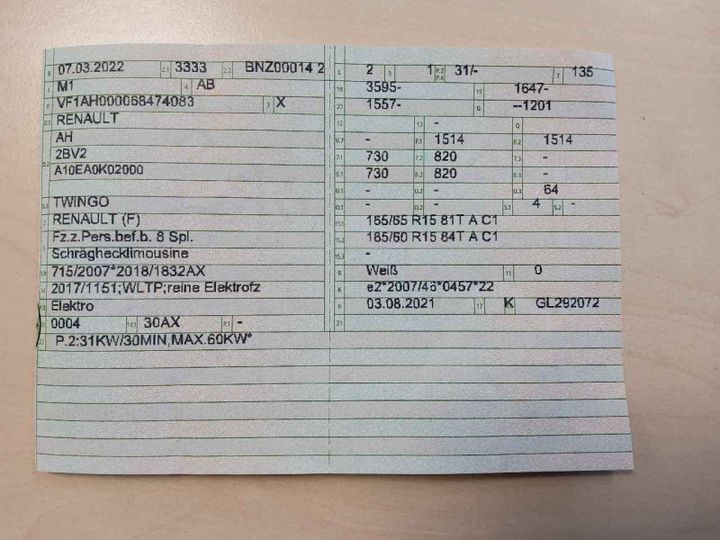 B 07.03.2022 2.1 3333 2.2 BNZ00014 2
J M1 4 AB
E VF1AH000068474083 3 X
D.1 RENAULT
AH
D.2 2BV2
A10EA0K02000
D.3 TWINGO
2 RENAULT (F)
5 Fz.z.Pers.bef.b. 8 Spl.
Schräghecklimousine
V.9 715/2007*2018/1832AX
14 2017/1151;WLTP;reine Elektrofz
P.3 Elektro
10 0004 14.1 30AX P.1 -
22 P.2:31KW/30MIN,MAX.60KW*
L 2 9 1 P.2 P.4 31/- T 135
18 3595- 19 1647-
20 1557- G --1201
12 - 13 - Q
V.7 - F.1 1514 F.2 1514
7.1 730 7.2 820 7.3 -
8.1 730 8.2 820 8.3 -
U.1 - U.2 - U.3 64
O.1 - O.2 - S.1 4 S.2 -
15.1 165/65 R15 81T A C1
15.2 185/60 R15 84T A C1
15.3 -
R Weiß 11 0
K e2*2007/46*0457*22
6 03.08.2021 17 K GL292072
21